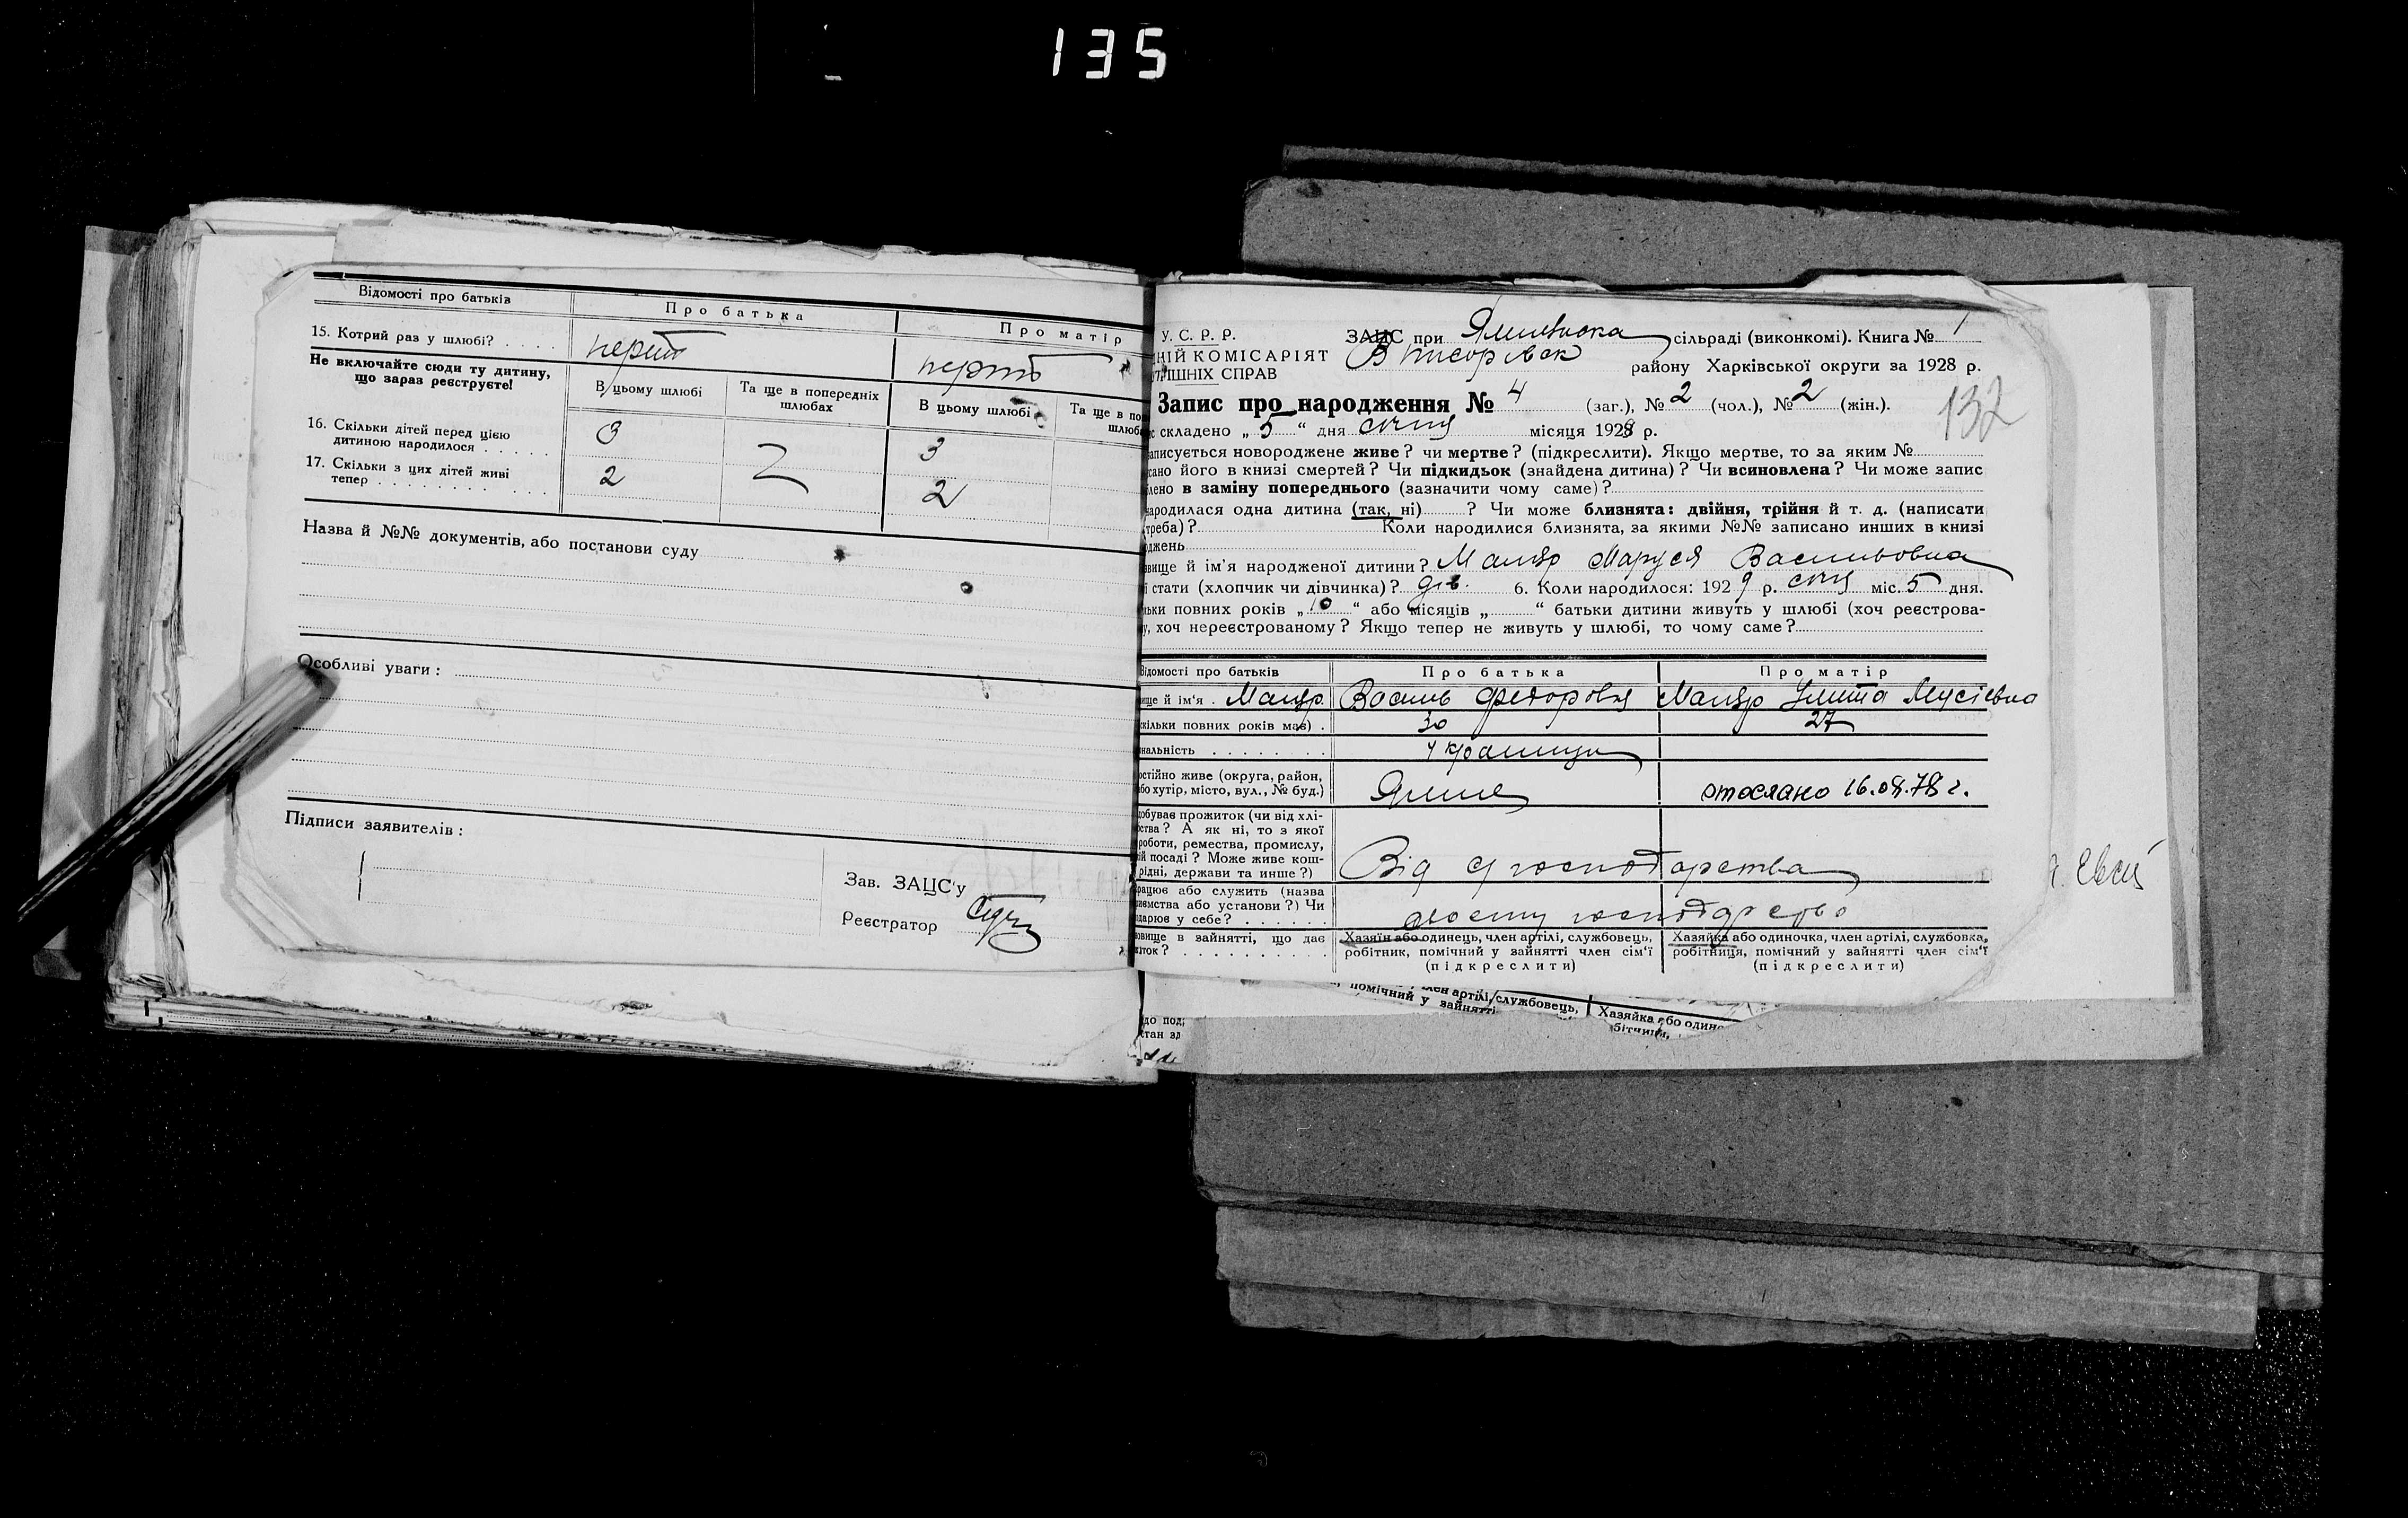 135
Відомості про батьків
Про батька
Про матір
15. Котрий раз у шлюбі? . . . .
Не включайте сюди ту дитину,
що зараз реєструєте!
В цьому шлюбі
Та ще в попередніх
шлюбах
В цьому шлюбі
Та ще в поп
шлюба
16. Скільки дітей перед цією
дитиною народилося . . . . .
3
3
17. Скільки з цих дітей живі
тепер . . . . . . . . . . .
2
2
Назва й №№ документів, або постанови суду
Особливі уваги :
Підписи заявителів :
Зав. ЗАЦС'у
Реєстратор
У. С. Р. Р.
ЗАЦС при сільраді (виконкомі). Книга № 1
НІЙ КОМІСАРІЯТ
району Харківської округи за 1928 р.
ІШНІХ СПРАВ
132
Запис про народження № 4 (заг.), № 2 (чол.), № 2 (жін.).
с складено „ 5 “ дня січня місяця 1928 р.
аписується новороджене живе? чи мертве? (підкреслити). Якщо мертве, то за яким №
сано його в книзі смертей? Чи підкидьок (знайдена дитина)? Чи всиновлена? Чи може запис
лено в заміну попереднього (зазначити чому саме)?
народилася одна дитина (так, ні) ? Чи може близнята: двійня, трійня й т. д. (написати
треба)? Коли народилися близнята, за якими №№ записано инших в книзі
джень
вище й ім'я народженої дитини? Маляр Маруся Васильовна
ї стати (хлопчик чи дівчинка)? дів. 6. Коли народилося: 1929 р. січня міс. 5 дня.
ьки повних років „ 10 “ або місяців „ “ батьки дитини живуть у шлюбі (хоч реєстрова-
у, хоч нереєстрованому? Якщо тепер не живуть у шлюбі, то чому саме?
Відомості про батьків
Про батька
Про матір
ище й ім'я . Маляр Василь Федорович Маляр Улита Мусіевна
кільки повних років має) . 30 27
нальність . . . . . . . .
остійно живе (округа, район,
або хутір, місто, вул., № буд.)
отослано 16.08.78 г.
добуває прожиток (чи від хлі-
ства? А як ні, то з якої
роботи, ремества, промислу,
ій посаді? Може живе кош-
рідні, держави та инше?)
Від с господарства
рацює або служить (назва
иємства або установи?) Чи
дарює у себе? . . . . . .
овище в зайнятті, що дає
иток? . . . . . . . . . .
Хазяїн або одинець, член артілі, службовець,
робітник, помічний у зайнятті член сім'ї
(підкреслити)
Хазяйка або одиночка, член артілі, службовка,
робітниця, помічний у зайнятті член сім'ї
(підкреслити)
лен артілі, службовець,
помічний у зайнятті
Хазяйка або один
бітниця,
до под
стан зд